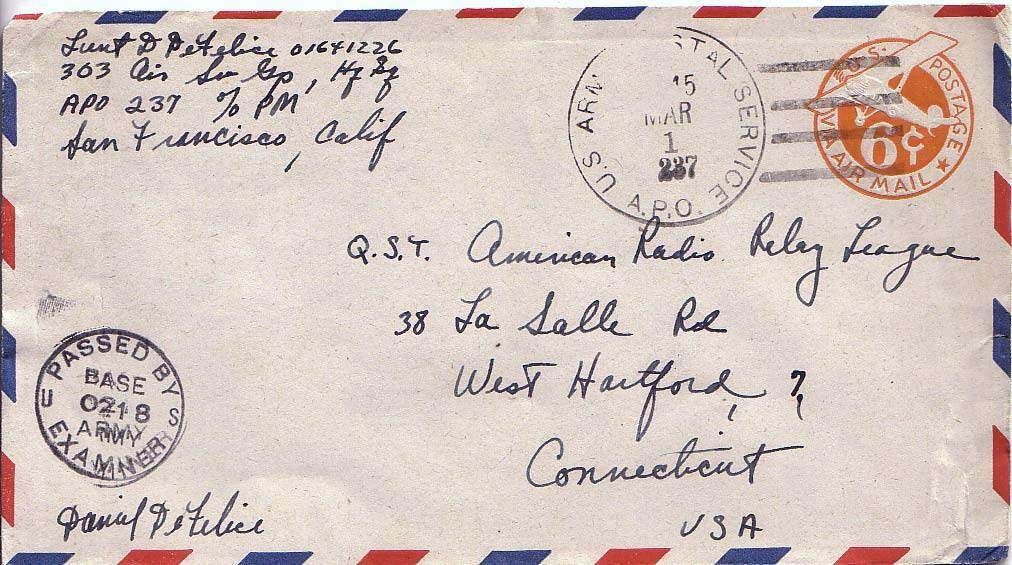 Lieut D DeFelice 01641226
303 Air Sv Gp, Hq Sq
APO 237 % PM
San Francisco, Calif
U.S. ARMY POSTAL SERVICE
15
MAR
1
237
A.P.O.
U.S. POSTAGE
6¢
VIA AIR MAIL
Q.S.T. American Radio Relay League
38 La Salle Rd
West Hartford, 7,
Connecticut
USA
PASSED BY
BASE
0218
ARMY
U S
EXAMINER
Daniel DeFelice